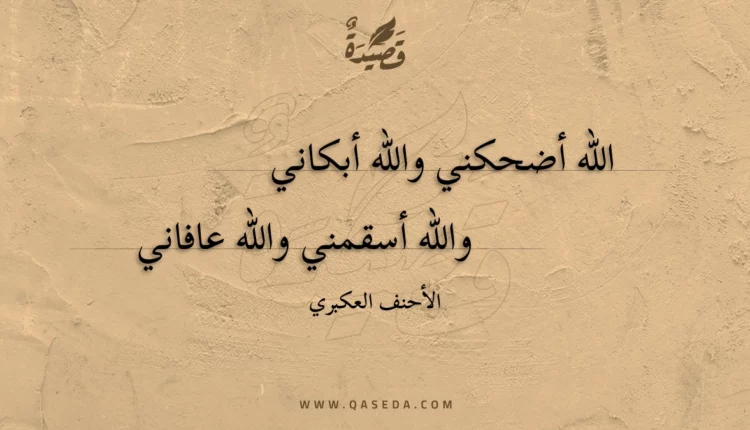 قَصِيْدَةٌ
الله أضحكني والله أبكاني
والله أسقمني والله عافاني
الأحنف العكبري
WWW.QASEDA.COM